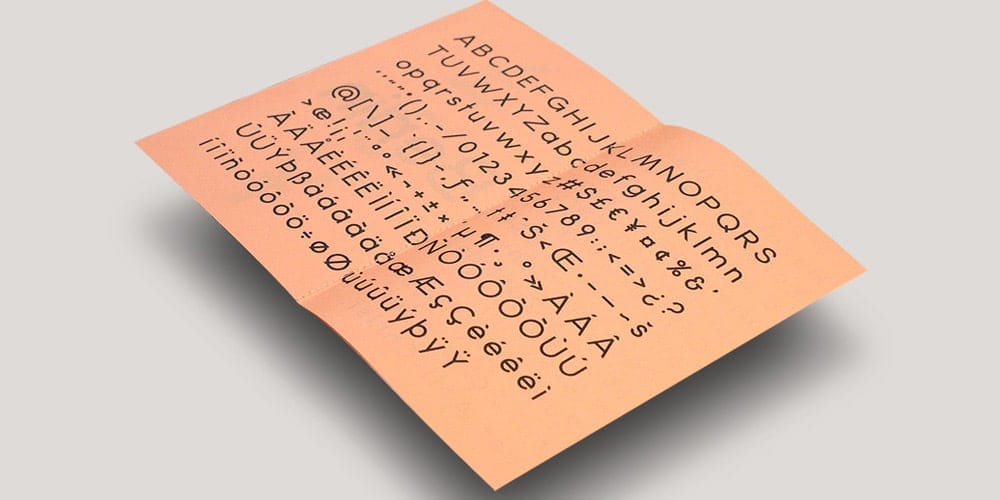 ABCDEFGHIJKLMNOPQRS
TUVWXYZabcdefghijklmn
opqrstuvwxyz#$£€¥¤¢%&
•().:-/0123456789:;<=>¿?
@[\]_{|}~ƒ„…†‡ˆŠ‹Œ––š
›œ!¡¦¨ªº«¬+±×´µ¶·¸°»ÀÁÂ
ÃÄÅÈÉÊËÌÍÎÏÐÑÒÓÔÕÙÚ
ÛÜÝÞßàáâãäåæÆçÇèéêëì
íîïñòóôõö÷øØùúûüýþÿŸ